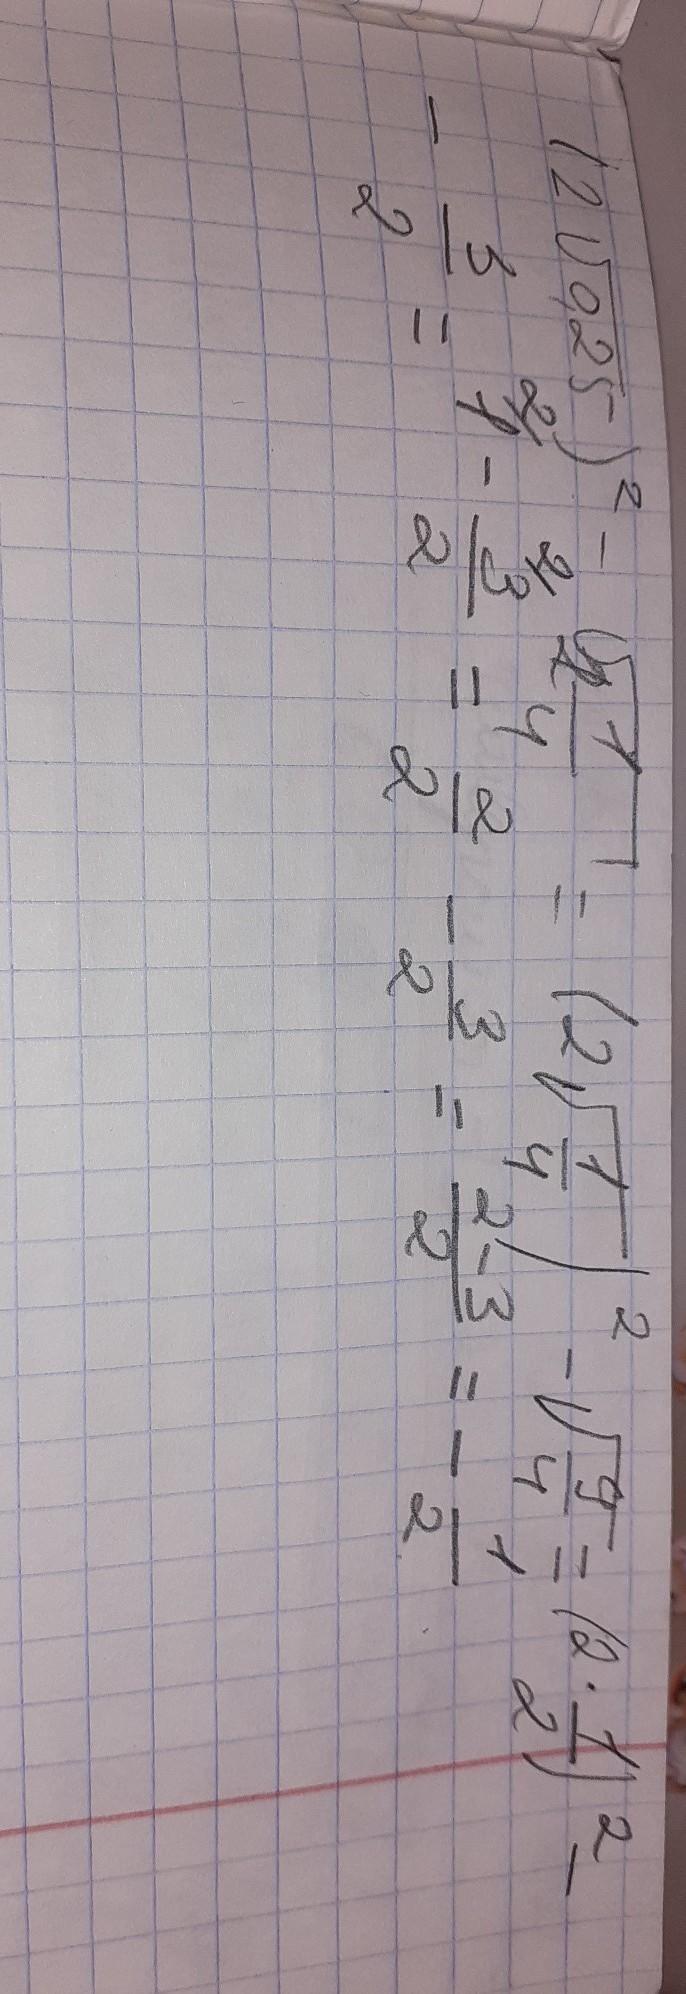 (2√0,25)² - √2 1/4 = (2√1/4)² - √9/4 = (2·1/2)² -
- 3/2 = 1 - 3/2 = 2/2 - 3/2 = 2-3/2 = - 1/2